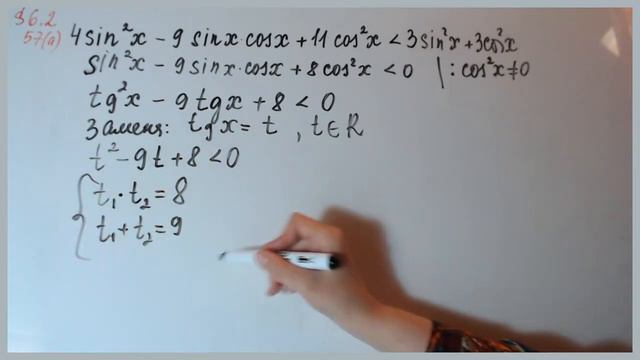 §6.2
57(а) 4sin²x - 9 sinx·cosx + 11cos²x < 3sin²x + 3cos²x
sin²x - 9sinx·cosx + 8cos²x < 0 | : cos²x ≠ 0
tg²x - 9tgx + 8 < 0
Замена: tgx = t , t∈R
t² - 9t + 8 < 0
t₁·t₂ = 8
t₁ + t₂ = 9